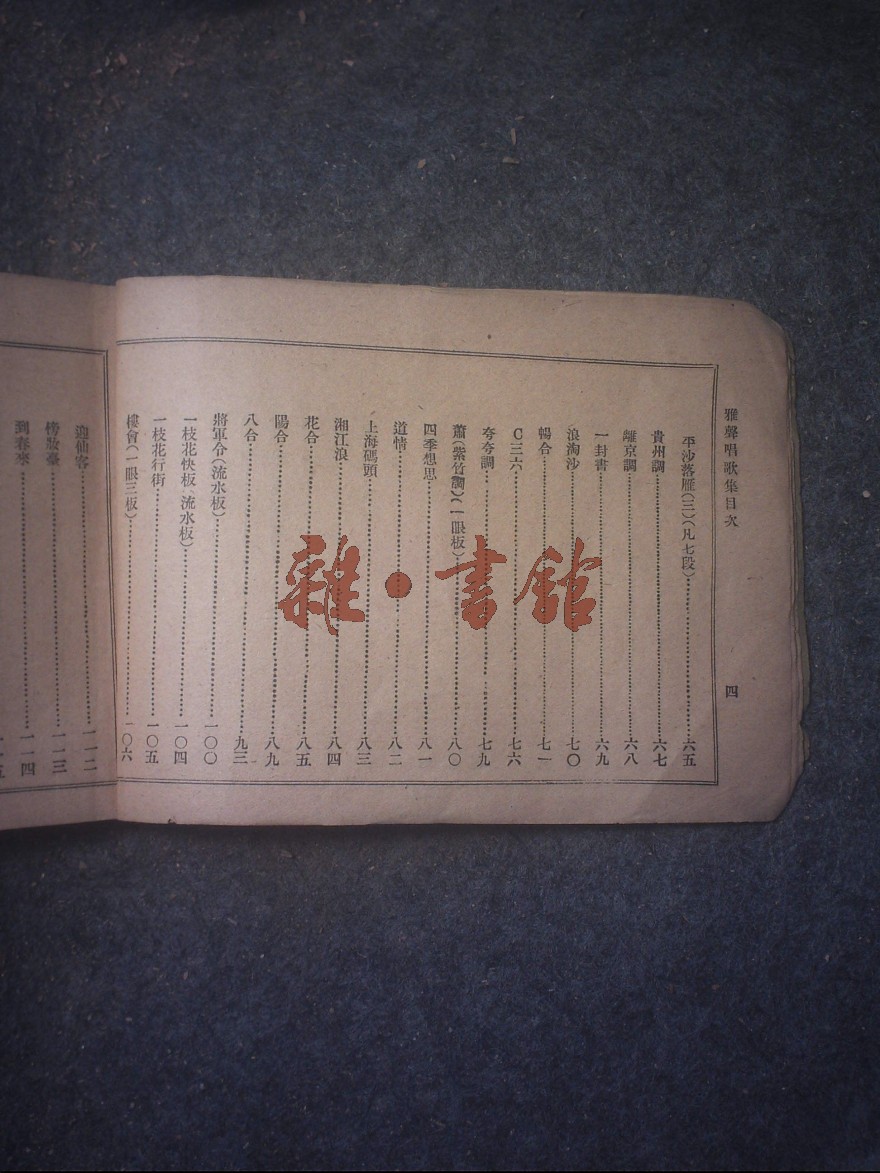 雅聲唱歌集目次
四
平沙落雁(三)(凡七段)……六五
貴州調……六七
離京調……六八
一封書……六九
浪淘沙……七〇
暢合……七一
C三六……七六
夸夸調……七九
蕭(紫竹調)(一眼板)……八〇
四季想思……八一
道情……八二
上海碼頭……八三
湘江浪……八四
花合……八五
陽合……八九
八合……九三
將軍令(流水板)……一〇〇
一枝花快板(流水板)……一〇四
一枝花行街……一〇五
樓會(一眼三板)……一〇六
迎仙客……一一二
榜妝臺……一一三
到春來……一一四
雜·書館